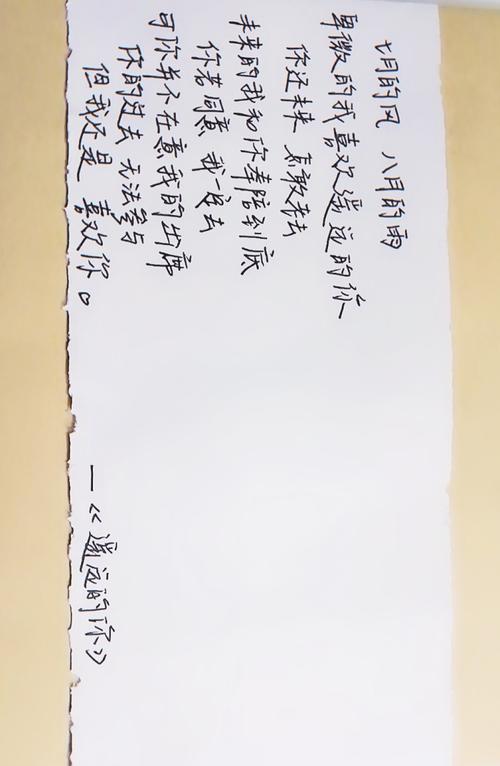 七月的风 八月的雨
卑微的我喜欢遥远的你
你还未来 怎敢老去
未来的我和你奉陪到底
你若同意 我一定去
可你并不在意我的出席
你的过去 无法参与
但我还是 喜欢你。
—《遥远的你》